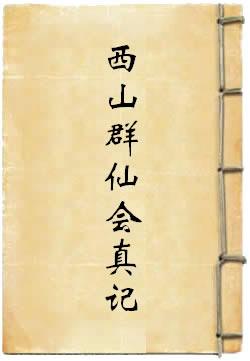 西山群仙会真记